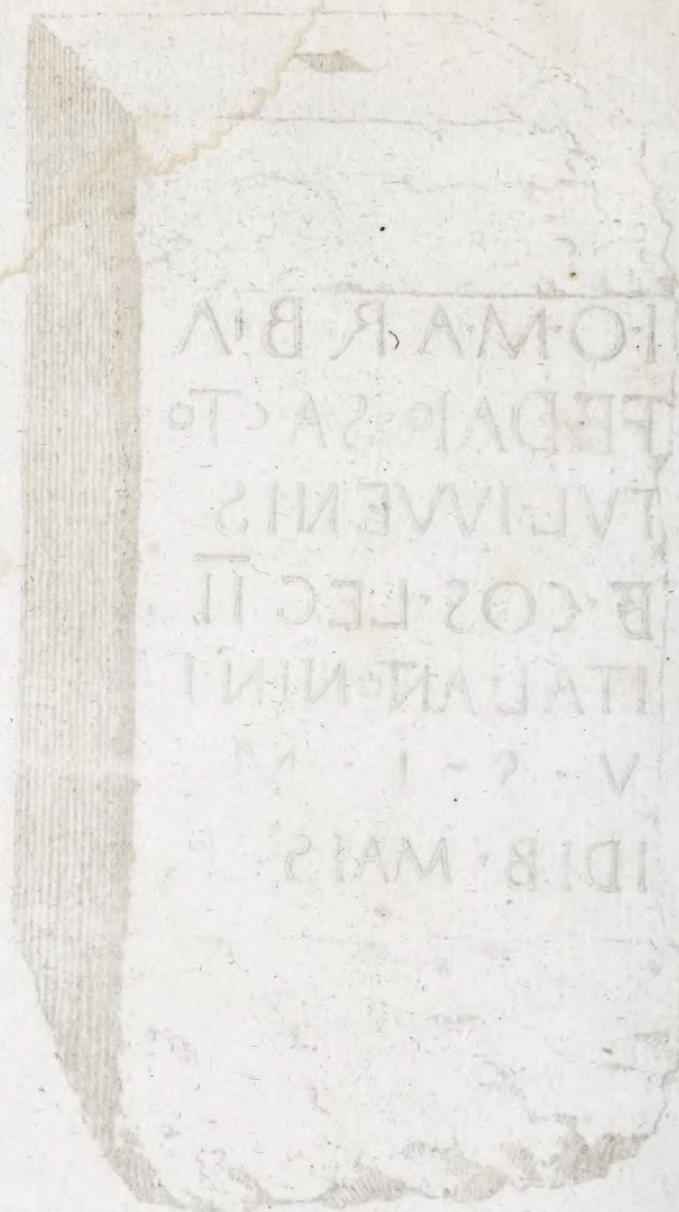 I·O·M·A·R·B·A
FEDAIo·SAcTo
TVL·IVVENIS
B·COS·LEG II
ITAL·ANToNINI
V - S - L - M
IDIB·MAIS